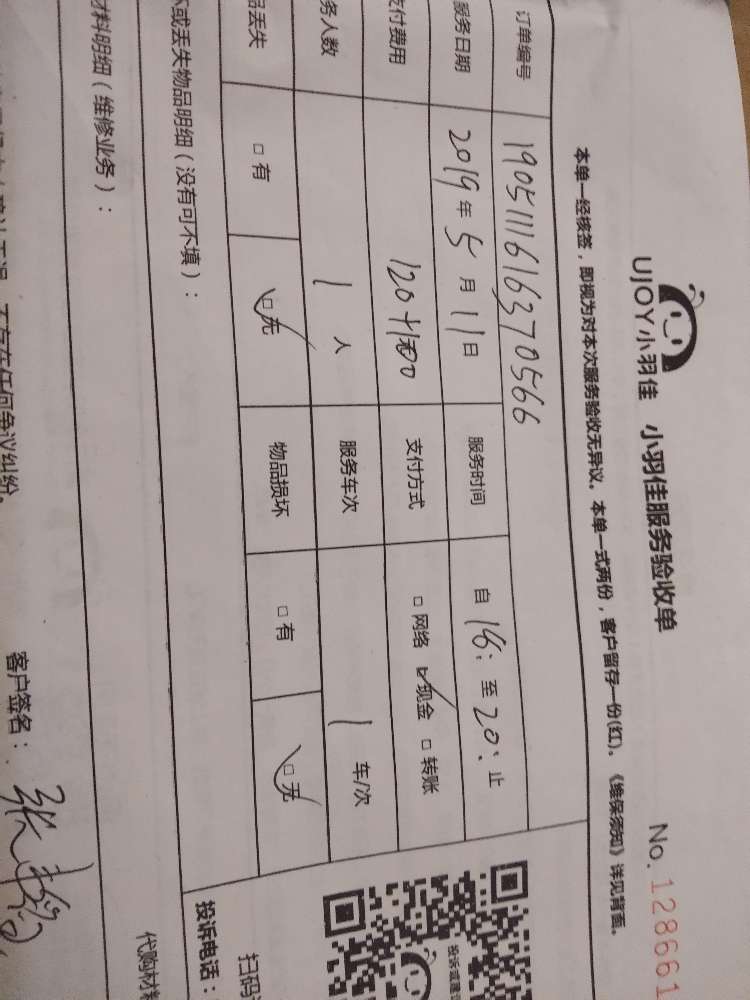 UJOY小羽佳 小羽佳服务验收单
No. 128661
本单一经核签，即视为对本次服务验收无异议。本单一式两份，客户留存一份(红)。《维保须知》详见背面。
订单编号 1905111616370566
服务日期 2019年5月11日 服务时间 自16:至20:止
支付费用 120 支付方式 □网络 ☑现金 □转账
务人数 1人 服务车次 1车/次
品丢失 □有 ☑无 物品损坏 □有 ☑无
坏或丢失物品明细（没有可不填）：
扫码
投诉电话：
材料明细（维修业务）：
代购材料
不存在任何争议纠纷。
客户签名：张